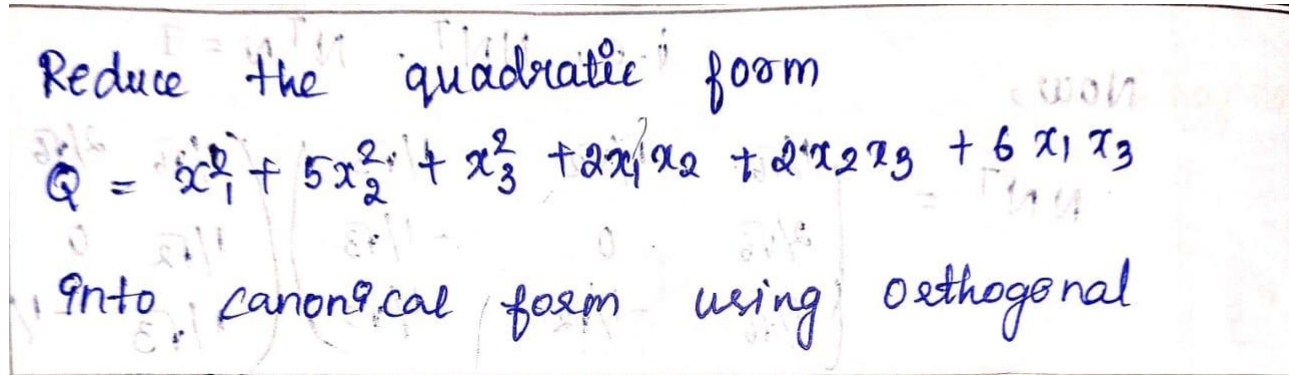 Reduce the quadratic form
Q = x₁² + 5x₂² + x₃² + 2x₁x₂ + 2x₂x₃ + 6x₁x₃
into canonical form using orthogonal